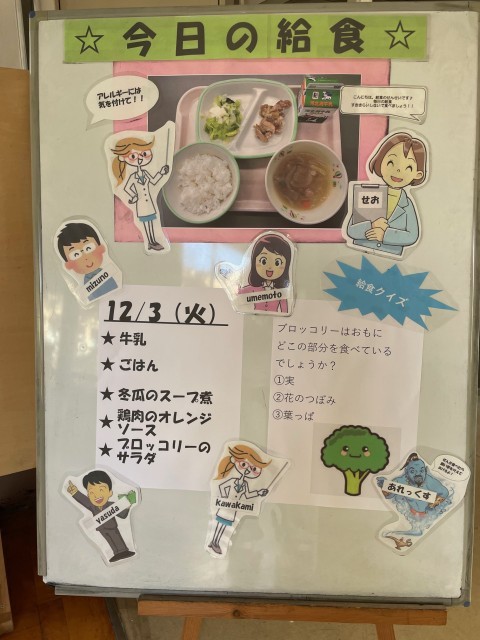 ☆今日の給食☆
アレルギーには
気を付けて!!
せお
mizuno
umemoto
給食クイズ
12/3(火)
★牛乳
★ごはん
★冬瓜のスープ煮
★鶏肉のオレンジ
ソース
★ブロッコリーの
サラダ
ブロッコリーはおもに
どこの部分を食べている
でしょうか?
①実
②花のつぼみ
③葉っぱ
yasuda
Kawakami
あれっくす